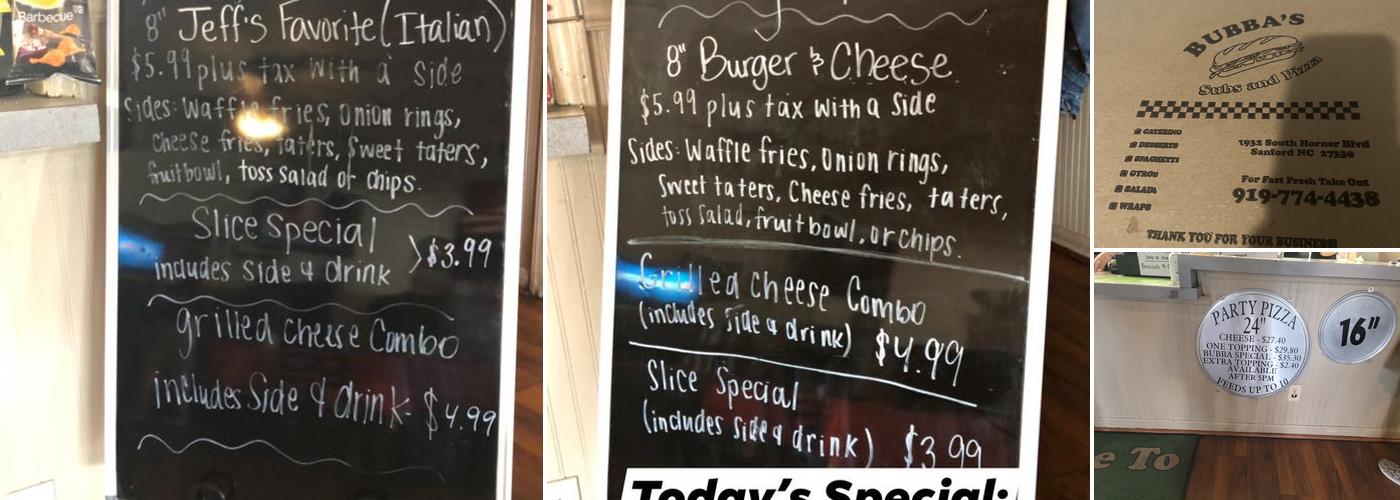 Barbecue
8" Jeff's Favorite (Italian)
$5.99 plus tax with a side
Sides: Waffle fries, Onion rings,
Cheese fries, taters, Sweet taters,
fruit bowl, toss salad or chips.
Slice Special
includes side & drink
$3.99
grilled cheese Combo
includes Side & drink- $4.99
8" Burger & Cheese
$5.99 plus tax with a side
Sides: Waffle fries, Onion rings,
Sweet taters, Cheese fries, taters,
toss salad, fruit bowl, or chips.
Grilled cheese Combo
(includes side & drink) $4.99
Slice Special
(includes side & drink) $3.99
Today's Special:
BUBBA'S
Subs and Pizza
CATERING
DESSERTS
SPAGHETTI
GYROS
SALADS
WRAPS
1932 South Horner Blvd
Sanford NC 27330
For Fast Fresh Take Out
919-774-4438
THANK YOU FOR YOUR BUSINESS!
Broccoli &
PARTY PIZZA
24"
CHEESE - $27.40
ONE TOPPING - $29.80
BUBBA SPECIAL - $35.30
EXTRA TOPPING - $2.40
AVAILABLE
AFTER 5PM
FEEDS UP TO 10
16"
e To